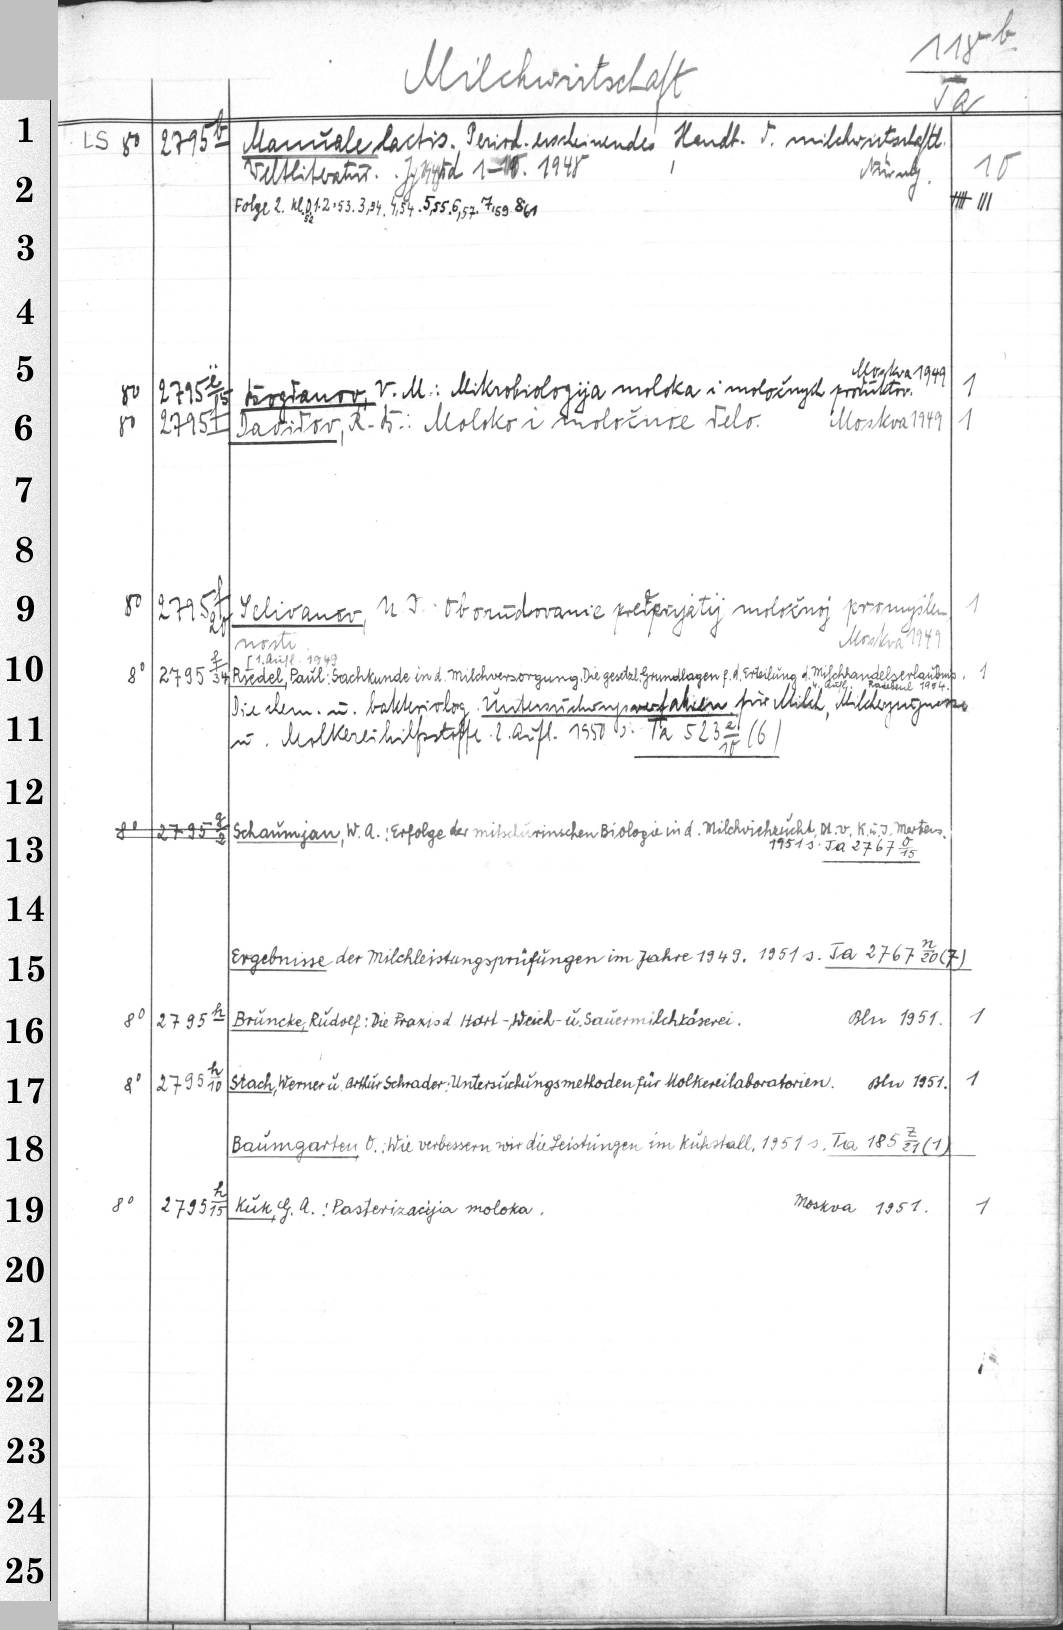 118 b
Milchwirtschaft
Ta
1
LS 8° 2795 b Manuale lactis. Period. erscheinendes Handb. d. milchwirtschaftl.
Weltliteratur. 1948 Nürnbg. 10
2
Folge 2. Kl. 0,52 1.2.53. 3,54. 4,54. 5,55. 6,57. 7,59. 8,61
3
4
5
Moskva 1949
8° 2795 e/15 Bogdanov, V. M.: Mikrobiologija moloka i moločnych produktov. 1
6
8° 2795 f Davidov, R. B.: Moloko i moločnoe delo. Moskva 1949 1
7
8
9
8° 2795 f/20 Selivanov, N I. Oborudovanie predprijatij moločnoj promyšlen 1
nosti Moskva 1949
[1. Aufl. 1949
10
8° 2795 f/34 Riedel, Paul: Sachkunde in d. Milchversorgung. Die gesetzl. Grundlagen f. d. Erteilung d. Milchhandelserlaubnis. 1
4. Aufl. Radebeul 1954.
Die chem. u. bakteriolog. Untersuchungsverfahren für Milch, Milcherzeugnisse
11
u. Molkereihilfsstoffe. 2. Aufl. 1950 s. Ta 523 e/10 (6)
12
8° 2795 g/2 Schaumjan, W. A.: Erfolge der mitschurinschen Biologie in d. Milchviehzucht, Dt. v. K. u. J. Mertens.
13
1951 s. Ta 2767 o/15
14
15
Ergebnisse der Milchleistungsprüfungen im Jahre 1949. 1951 s. Ta 2767 n/20 (7)
16
8° 2795 h Bruncke, Rudolf: Die Praxis d Hart-, Weich- u. Sauermilchkäserei. Bln 1951. 1
17
8° 2795 h/10 Stach, Werner u. Arthur Schrader: Untersuchungsmethoden für Molkereilaboratorien. Bln 1951. 1
18
Baumgarten, O.: Wie verbessern wir die Leistungen im Kuhstall. 1951 s. Ta 185 z/21 (1)
19
8° 2795 h/15 Kuk, G. A.: Pasterizacija moloka. Moskva 1951. 1
20
21
22
23
24
25